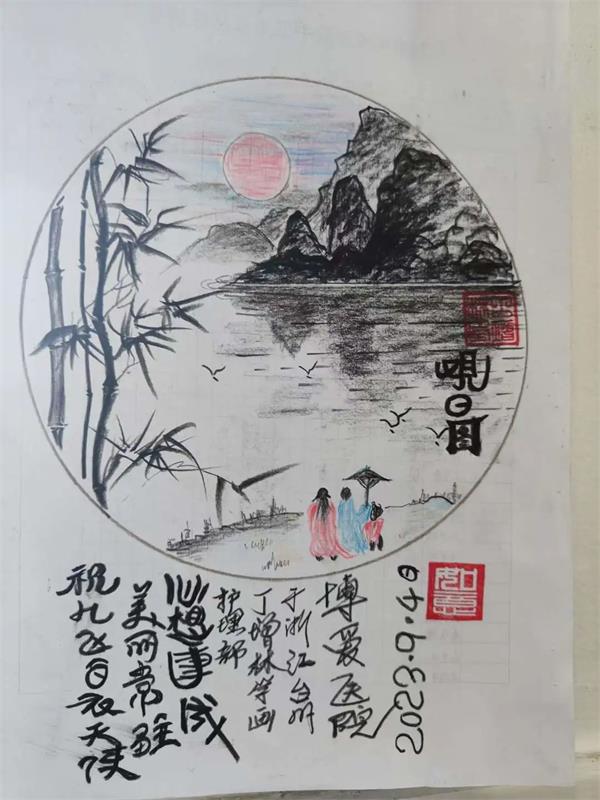 日图
2023.9.4日
博爱医院
于浙江台州
丁增林学画
护理部
心想事成
美丽常驻
祝九白衣天使
如意